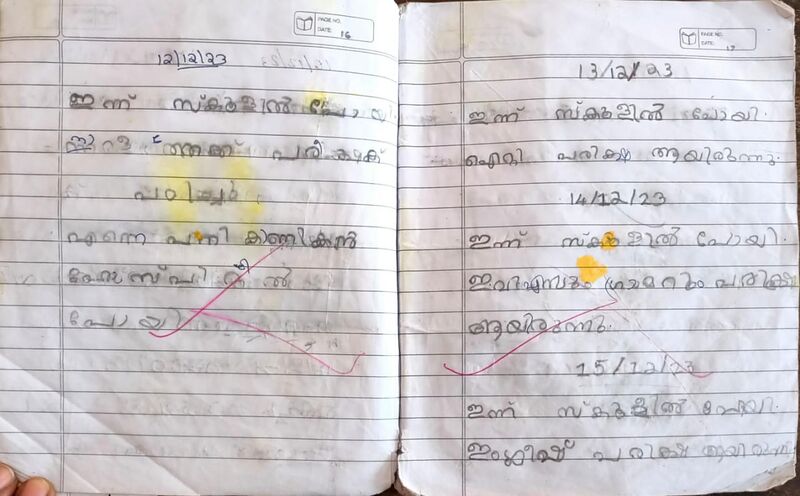 PAGE NO.
DATE: 16
12/12/23
ഇന്ന് സ്കൂളിൽ പോയി
പരീക്ഷക്ക്
പഠിച്ചു
എന്നെ പനി കാണിക്കൻ
ഹോസ്പിറ്റൽ
പോയി
PAGE NO.
DATE: 17
13/12/23
ഇന്ന് സ്കൂളിൽ പോയി.
ഐറ്റി പരിക്ഷ ആയിരുന്നു.
14/12/23
ഇന്ന് സ്കൂളിൽ പോയി.
പരിക്ഷ
ആയിരുന്നു.
15/12/23
ഇന്ന് സ്കൂളിൽ പോയി.
ഇംഗ്ലീഷ് പരിക്ഷ ആയിരുന്ന